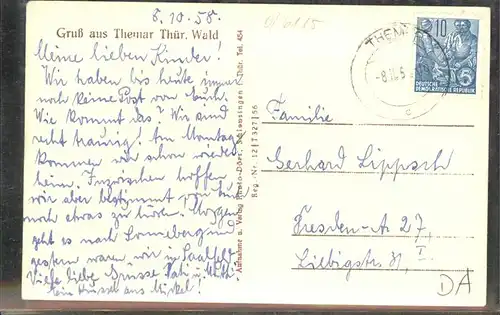 8.10.58.
Gruß aus Themar Thür. Wald
Meine lieben Kinder!
Wir haben bis heute immer
noch keine Post von Euch.
Wie kommt das? Wir sind
recht traurig! Am Montag
kommen wir schon wieder
heim. Inzwischen hoffen
wir aber bestimmt von Euch
noch etwas zu hören. Morgen
geht es nach Sonneberg und
gestern waren wir in Saalfeld
Viele liebe Grüsse Vati u. Mutti
Ein Küssel aus
Aufnahme u. Verlag Photo-Dörr, Schleusingen Thür. Tel. 454
Reg.-Nr. 12|T327|56
THEMAR
-8.10.5
10
DEUTSCHE
DEMOKRATISCHE
REPUBLIK
5
Familie
Gerhard Lippsch
Dresden-A 27,
Liebigstr. 31, I
DA